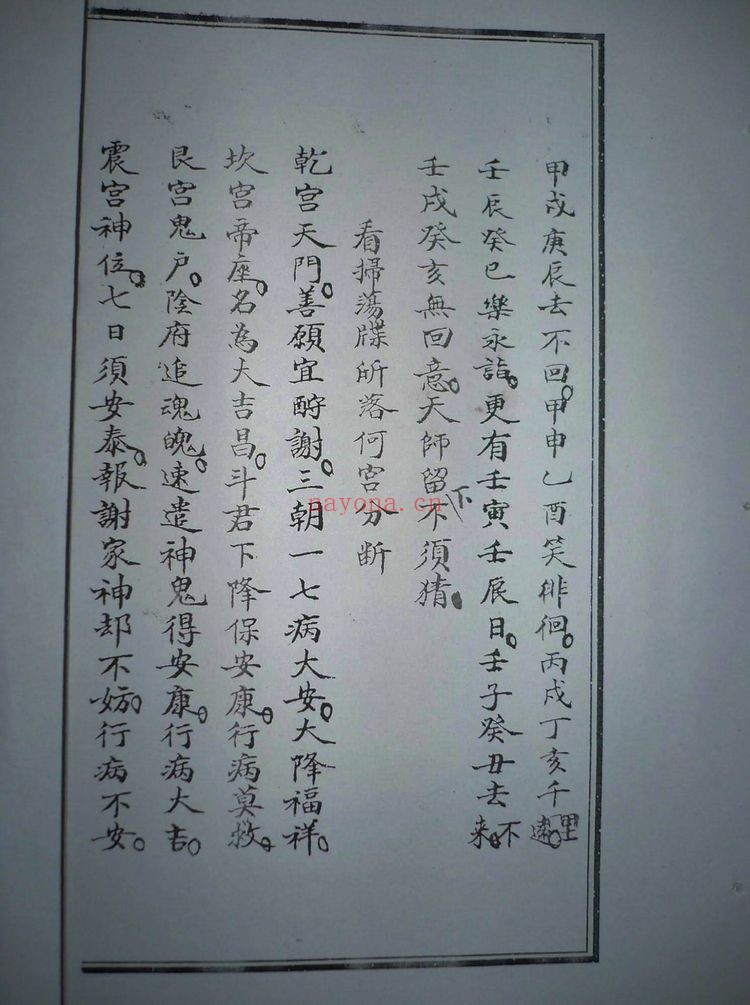 甲戌庚辰去不回。甲申乙酉笑徘徊。丙戌丁亥千里遠。
壬辰癸巳樂永諧。更有壬寅壬辰日。壬子癸丑去不来。
壬戌癸亥無回意。天師留下不須猜。
看掃蕩牒所落何宮分断
乾宮天門。善願宜酧謝。三朝一七病大安。大降福祥。
坎宮帝座。名為大吉昌。斗君下降保安康。行病莫救。
艮宮鬼户。陰府追魂魄。速遣神鬼得安康。行病大吉。
震宮神位。七日須安泰。報謝家神却不妨。行病不安。
nayona.cn